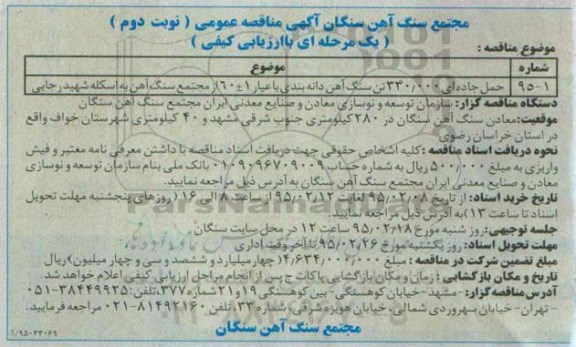 مجتمع سنگ آهن سنگان آگهی مناقصه عمومی ( نوبت دوم )
( یک مرحله ای باارزیابی کیفی )
موضوع مناقصه :
شماره موضوع
۹۵-۱ حمل جاده‌ای ۳۳۰/۰۰۰ تن سنگ آهن دانه بندی با عیار ۱±۶۰ از مجتمع سنگ آهن به اسکله شهید رجایی
دستگاه مناقصه گزار: سازمان توسعه و نوسازی معادن و صنایع معدنی ایران مجتمع سنگ آهن سنگان
موقعیت: معادن سنگ آهن سنگان در ۲۸۰ کیلومتری جنوب شرقی مشهد و ۴۰ کیلومتری شهرستان خواف واقع
در استان خراسان رضوی
نحوه دریافت اسناد مناقصه : کلیه اشخاص حقوقی جهت دریافت اسناد مناقصه با داشتن معرفی نامه معتبر و فیش
واریزی به مبلغ ۵۰۰/۰۰۰ ریال به شماره حساب ۰۱۰۹۰۹۶۷۰۹۰۰۹ بانک ملی بنام سازمان توسعه و نوسازی
معادن و صنایع معدنی ایران مجتمع سنگ آهن سنگان به آدرس ذیل مراجعه نمایند.
تاریخ خرید اسناد: از تاریخ ۹۵/۰۲/۰۸ لغایت ۹۵/۰۲/۱۲ از ساعت ۸ الی ۱۶ ( روزهای پنجشنبه مهلت تحویل
اسناد تا ساعت ۱۳) به آدرس ذیل مراجعه نمایند.
جلسه توجیهی: روز شنبه مورخ ۹۵/۰۲/۱۸ ساعت ۱۲ در محل سایت سنگان
مهلت تحویل اسناد: روز یکشنبه مورخ ۹۵/۰۲/۲۶ تا آخر وقت اداری
مبلغ تضمین شرکت در مناقصه : مبلغ ۴/۶۳۴/۰۰۰/۰۰۰( چهار میلیارد و ششصد و سی و چهار میلیون) ریال
تاریخ و مکان بازگشایی : زمان و مکان بازگشایی پاکات ج پس از انجام مراحل ارزیابی کیفی اعلام خواهد شد
آدرس مناقصه گزار: -مشهد- خیابان کوهسنگی- بین کوهسنگی ۱۹ و ۲۱ شماره ۳۷۷، تلفن: ۳۸۴۴۹۹۲۵-۰۵۱
-تهران- خیابان سهروردی شمالی، خیابان هویزه شرقی شماره ۳۳، تلفن ۸۱۴۹۲۱۶۰-۰۲۱ مراجعه فرمایید.
مجتمع سنگ آهن سنگان
ParsNamadData
۱/۹۵-۳۳۰۶۹